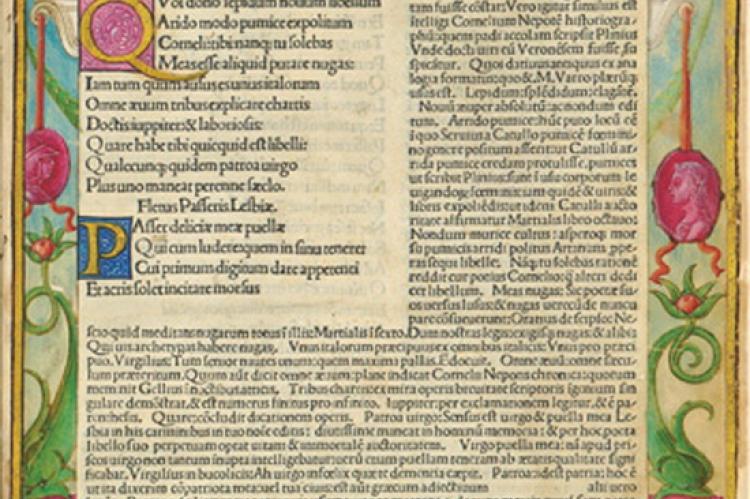 Voi dono lepidum nouum libellum
Arido modo pumice expolitum
Corneli tibi nanq; tu solebas
Meas esse aliquid putare nugas:
Iam tum quom ausus es unus italorum
Omne æuum tribus explicare chartis
Doctis iuppiter & laboriosis:
Quare habe tibi quicquid est libelli:
Qualecunq; quidem patroa uirgo
Plus uno maneat perenne sæclo.
Fletus Passeris Lesbiæ.
PAsser deliciæ meæ puellæ
Qui cum ludere quem in sinu tenere
Cui primum digitum dare appetenti
Et acris solet incitare morsus
tam fuisse cõstat: Vero igitur similius est
Cornelium Nepotẽ historiogra
phũ: quem padi accolam scripsit Plinius
Vnde docti uiri eũ Veronẽsem fuisse su
spicãtur. Quoi datiuus antiquus ex ana
logia formatur: quo &. M. Varro plærũq;
usus est. Lepidum: splẽdidum: elegãtẽ.
Nouũ: nuper absolutũ: ac nondum edi
tum. Arido pumice: hũc puto locũ eẽ
ĩ quo Seruius a Catullo pumicẽ fœmini
no genere positum asserit: ut Catulli ar
rida pumice credam protulisse, pumices
ut scribit Plinius sunt ĩ usu corporum le
libris expoliẽdis: ut idem Catulli aucto
ritate affirmatur Martialis libro octauo:
Nondum murice cultus: asperoq; mor
su pumicis arridi politus
ras sequi libelle. Nãq; tu solebas rationẽ
reddit cur potius Cornelio q̃ alteri dedi
cet libellum. Meas nugas: Sic poetæ su
os uersus lusus & nugas
pare cõsueuerunt: de se ipso: Ne-
scio quid meditans nugarum totus ĩ illis: Martialis ĩ sexto. Dum nostras legis exigisq; nugas: & alibi:
Qui uis archetypas habere nugas. Vnus italorum præcipuus ex omnibus italicis: Vnus pro præci
puo. Virgilius: Tum senior nautes unum: quem maxima pallas. Edocuit. Omne æuũ: omne secu-
lum præteritum. Quom aũt dicit omne æuum: plane indicat Cornelii Nepotis chronica: quorum
meminit Gellius ĩ noctibus atticis. Tribus chartis: ex mira operis breuitate scriptoris ignauum sin
gulare demõstrat, & est numerus finitus pro infinito. Iuppiter: per exclamationem legitur, & ẽ pa-
renthesis. Quare: cõcludit dicationem operis. Patroa uirgo: Sensus est uirgo & puella mea Le-
sbia in his carminibus in tuo noĩe editis: diutissime maneat in hominũ memoria: & per hoc poeta
libello suo perpetuam optat uitam & immortalẽ auctoritatem. Virgo puella mea: nã apud pri-
scos uirgo non tantum inupta intelligebatur: uerũ etiam puellam teneram ab ætatis qualitate signi
ficabat. Virgilius in bucolicis: Ah uirgo infœlix quæ te dementia cæpit. Patroa: idest patria: hoc ẽ
ut ita dixerim cõpatriota mea: uel tua ciuis: est aũt græcum adiectiuum alii uero